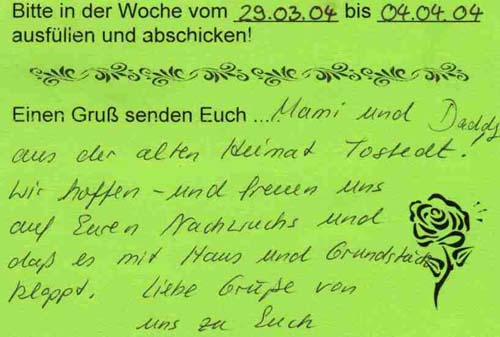 Bitte in der Woche vom 29.03.04 bis 04.04.04
ausfüllen und abschicken!
Einen Gruß senden Euch ... Mami und Daddy
aus der alten Heimat Tostedt.
Wir hoffen - und freuen uns
auf Euren Nachwuchs und
daß es mit Haus und Grundstück
klappt. Liebe Grüße von
uns zu Euch